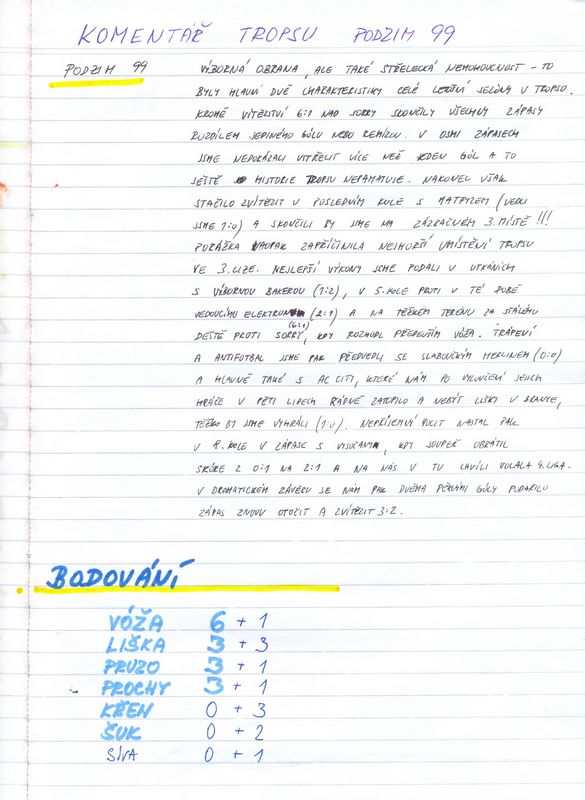 KOMENTÁŘ TROPSU PODZIM 99
PODZIM 99
VÝBORNÁ OBRANA, ALE TAKÉ STŘELECKÁ NEMOHOUCNOST - TO
BYLY HLAVNÍ DVĚ CHARAKTERISTIKY CELÉ LETOŠNÍ SEZÓNY V TROPSU.
KROMĚ VÍTĚZSTVÍ 6:1 NAD SORRY SKONČILY VŠECHNY ZÁPASY
ROZDÍLEM JEDINÉHO GÓLU NEBO REMÍZOU. V OSMI ZÁPASECH
JSME NEDOKÁZALI VSTŘELIT VÍCE NEŽ JEDEN GÓL A TO
JEŠTĚ HISTORIE TROPSU NEPAMATUJE. NAKONEC VŠAK
STAČILO ZVÍTĚZIT V POSLEDNÍM KOLE S MATPYZEM (VEDLI
JSME 1:0) A SKONČILI BY JSME NA ZÁZRAČNÉM 3. MÍSTĚ !!!
PORÁŽKA NAOPAK ZAPŘÍČINILA NEJHORŠÍ UMÍSTĚNÍ TROPSU
VE 3. LIZE. NEJLEPŠÍ VÝKONY JSME PODALI V UTKÁNÍCH
S VÝBORNOU BAKEROU (1:2), V 5. KOLE PROTI V TÉ DOBĚ
VEDOUCÍMU (2:1) A NA TĚŽKÉM TERÉNU ZA STÁLÉHO
DEŠTĚ PROTI SORRY (6:1), KDY ROZHODL PŘEDEVŠÍM VÓŽA. TRÁPENÍ
A ANTIFOTBAL JSME PAK PŘEDVEDLI SE SLABOUČKÝM MERLINEM (0:0)
A HLAVNĚ TAKÉ S AC CITI, KTERÉ NÁM PO VYLOUČENÍ JEJICH
HRÁČE V PĚTI LIDECH ŘÁDNĚ ZATOPILO A NEBÝT LIŠKY V BRANCE,
TĚŽKO BY JSME VYHRÁLI (1:0). NEPŘÍJEMNÝ POCIT NASTAL PAK
V 8. KOLE V ZÁPASE S VYSOČANY, KDY SOUPEŘ OBRÁTIL
SKÓRE Z 0:1 NA 2:1 A NA NÁS V TU CHVÍLI VOLALA 4. LIGA.
V DRAMATICKÉM ZÁVĚRU SE NÁM PAK DVĚMA PĚKNÝMI GÓLY PODAŘILO
ZÁPAS ZNOVU OTOČIT A ZVÍTĚZIT 3:2.
BODOVÁNÍ
VÓŽA 6 + 1
LIŠKA 3 + 3
PRUZO 3 + 1
PROCHY 3 + 1
KŘEN 0 + 3
ŠUK 0 + 2
SÍVA 0 + 1